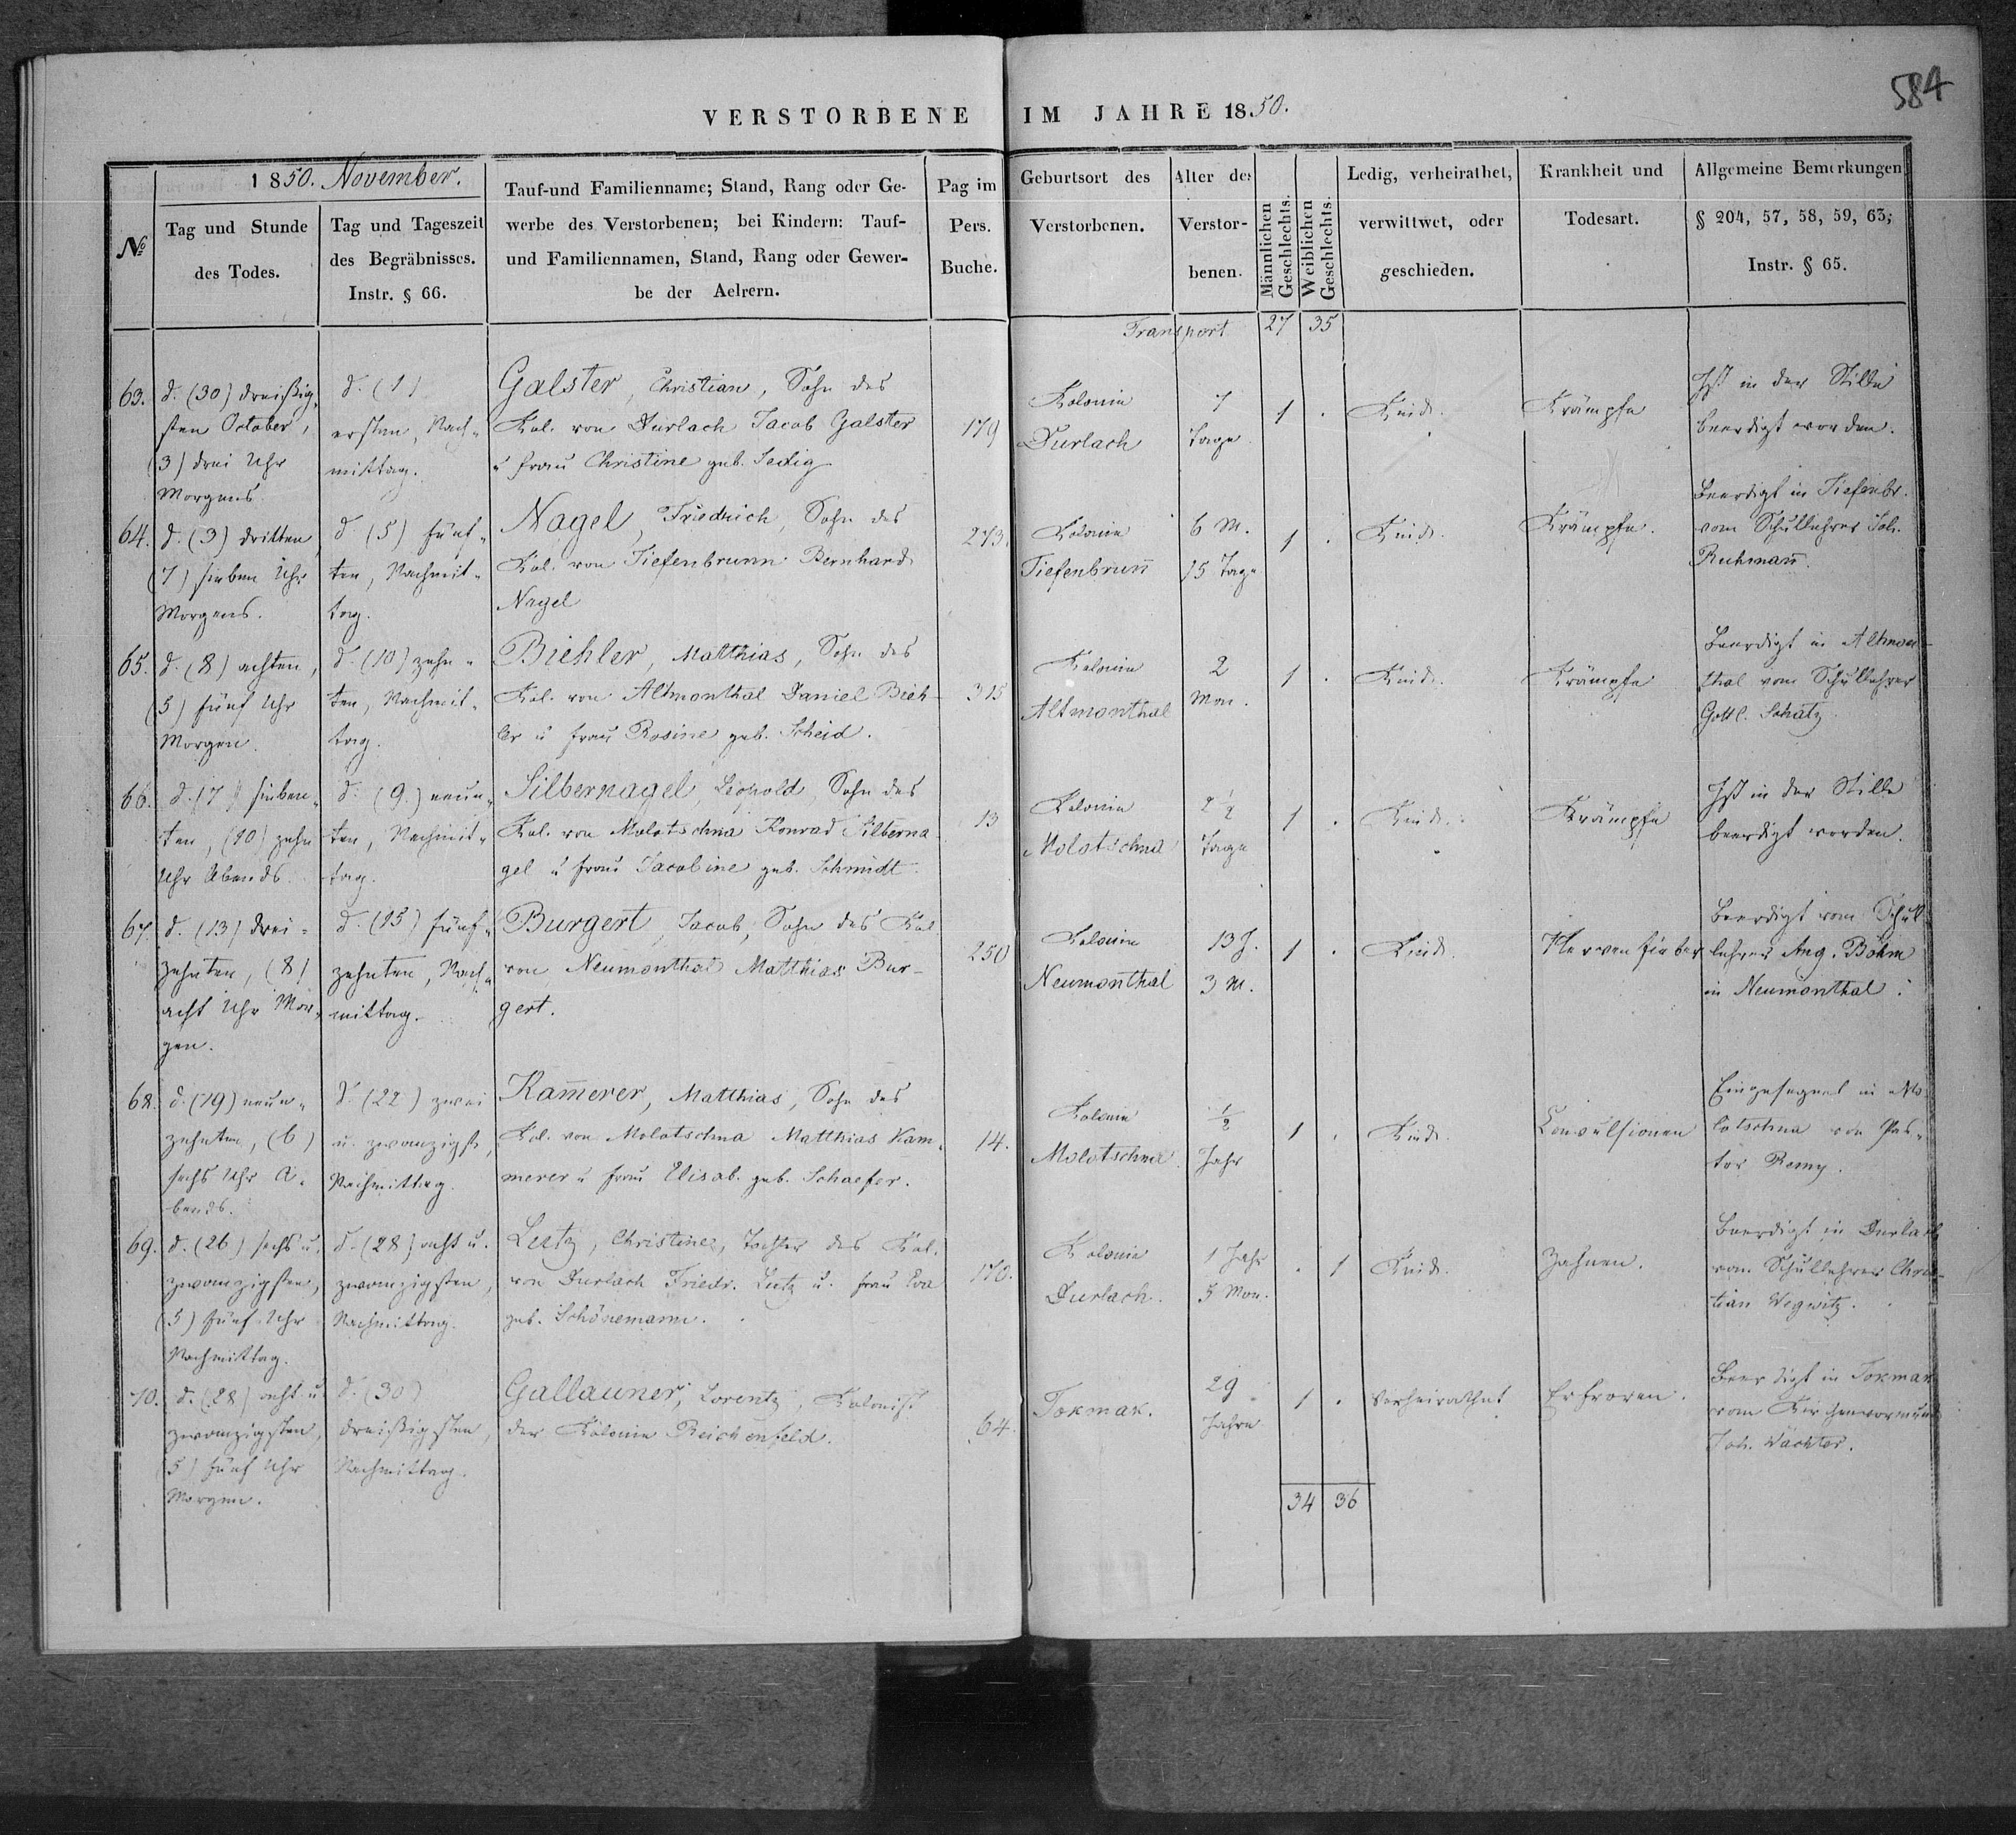 584
VERSTORBENE IM JAHRE 1850.
No
1850. November.
Tag und Stunde
des Todes.
Tag und Tageszeit
des Begräbnisses.
Instr. § 66.
Tauf-und Familienname; Stand, Rang oder Ge-
werbe des Verstorbenen; bei Kindern: Tauf-
und Familiennamen, Stand, Rang oder Gewer-
be der Aelrern.
Pag im
Pers.
Buche.
Geburtsort des
Verstorbenen.
Alter des
Verstor-
benen.
Männlichen
Geschlechts.
Weiblichen
Geschlechts.
Ledig, verheirathet,
verwittwet, oder
geschieden.
Krankheit und
Todesart.
Allgemeine Bemerkungen
§ 204, 57, 58, 59, 63,
Instr. § 65.
Transport 27 35
63.
d. (30) dreißig-
sten October,
(3) drei Uhr
Morgens.
d. (1)
ersten, Nach-
mittag.
Galster, Christian, Sohn des
Kol. von Durlach Jacob Galster
u Frau Christine geb. Sedig
179
Kolonie
Durlach
7
Tage.
1 .
Kind.
Krämpfe
Ist in der Stille
beerdigt worden.
64.
d. (3) dritten,
(7) sieben Uhr
Morgens.
d (5) fünf-
ten, Nachmit-
tag.
Nagel, Friedrich, Sohn des
Kol. von Tiefenbrunn Bernhard
Nagel
273.
Kolonie
Tiefenbrun̄
6 M.
15 Tage
1 .
Kind.
Krämpfe.
Beerdigt in Tiefenbr.
vom Schullehrer Joh.
Ruhman̄.
65.
d. (8) achten,
(5) fünf Uhr
Morgen.
d. (10) zehn-
ten, Nachmit-
tag.
Biehler, Matthias, Sohn des
Kol. von Altmonthal Daniel Bieh-
ler u Frau Rosine geb. Scheid.
315
Kolonie
Altmonthal
2
Mon.
1 .
Kind.
Krämpfe
Beerdigt in Altmon-
thal vom Schullehrer
Gottl. Schatz.
66.
d. (7) sieben-
ten, (10) zehn
Uhr Abends.
d. (9.) neun-
ten, Nachmit-
tag.
Silbernagel, Leopold, Sohn des
Kol. von Molotschna Konrad Silberna-
gel u Frau Jacobine geb. Schmidt.
13
Kolonie
Molotschna
2 1/2
Tage
1 .
Kind.
Krämpfe
Ist in der Stille
beerdigt worden.
67.
d. (13) drei-
zehnten, (8)
acht Uhr Mor-
gen.
d. (15) fünf-
zehnten, Nach-
mittag.
Burgert, Jacob, Sohn des Kol
von Neumonthal Matthias Bur-
gert.
250
Kolonie
Neumonthal
13 J.
3 M.
1 .
Kind.
Nervenfieber
Beerdigt vom Schul-
lehrer Aug. Böhm
in Neumonthal.
68.
d. (19) neun-
zehnten, (6)
sechs Uhr A-
bends.
d. (22) zwei
u. zwanzigst,
Nachmittag.
Kam̄erer, Matthias, Sohn des
Kol. von Molotschna Matthias Kam-
merer u Frau Elisab. geb. Schaefer.
14.
Kolonie
Molotschna
1/2
Jahr
1 .
Kind.
Convulsionen
Eingesegnet in Mo-
lotschna von Pas-
tor Remy.
69.
d. (26) sechs u.
zwanzigsten,
(5) fünf Uhr
Nachmittag.
d. (28) acht u.
zwanzigsten,
Nachmittag.
Lutz, Christine, Tochter des Kol.
von Durlach Friedr. Lutz u. Frau Eva
geb. Schönemann.
170.
Kolonie
Durlach.
1 Jahr
5 Mon.
. 1
Kind.
Zahnen.
Beerdigt in Durlach
vom Schullehrer Chris-
tian Wegwitz.
70.
d. (28) acht u
zwanzigsten,
(5) fünf Uhr
Morgen.
d. (30)
dreißigsten,
Nachmittag.
Gallauner, Lorentz, Kolonist
der Kolonie Reichenfeld.
64.
Tokmak.
29
Jahre
1 .
Verheirathet
Erfroren.
Beerdigt in Tokmak
vom Kirchenvormund
Joh. Wachter.
34 36